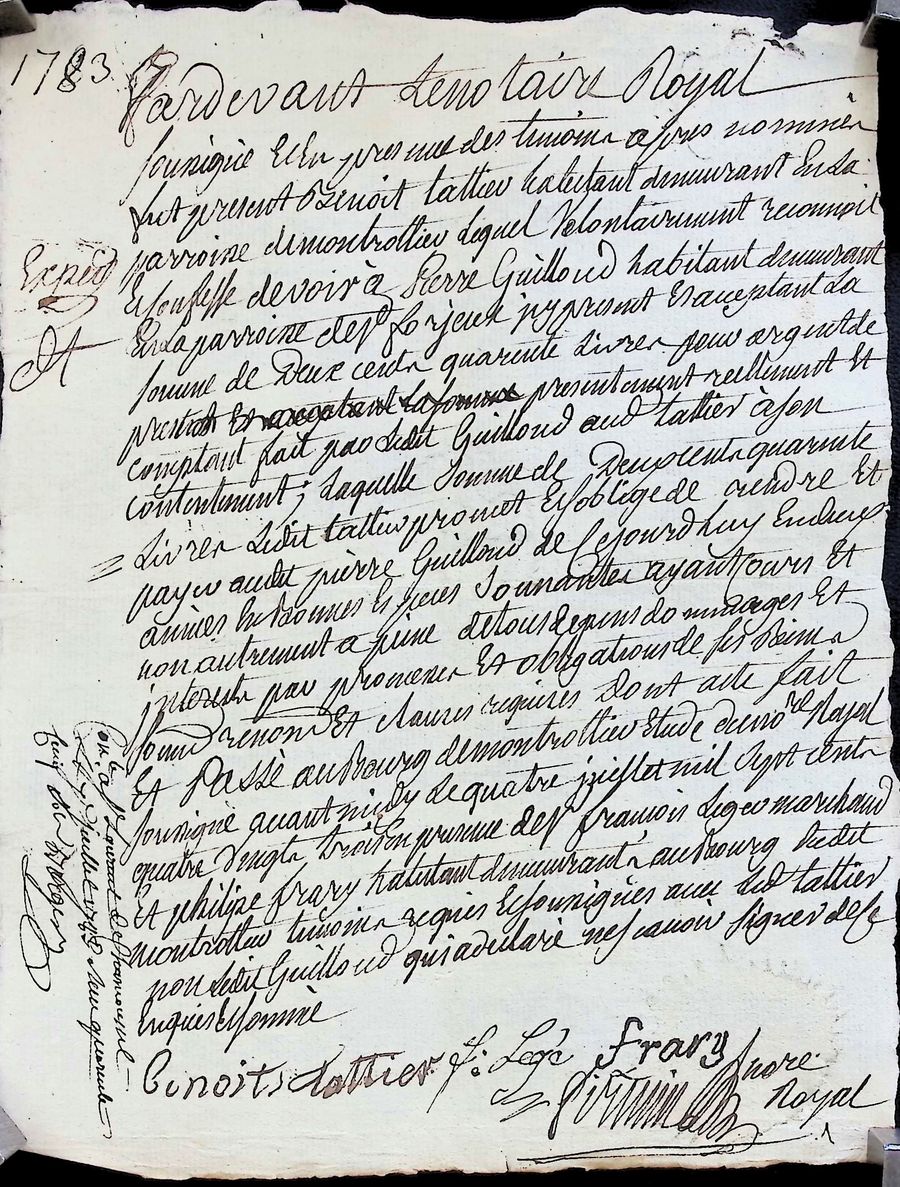 1783
Pardevant Lenotaire Royal
sousigné Et En presence des temoins apres nommés
fut present Benoit Lattier habitant demeurant En La
parroisse demontrottier Lequel Volontairement reconnoit
Et confesse devoir à Pierre Guilloud habitant demeurant
En La parroisse de st forjeux jcy present Et acceptant La
somme de Deux cents quarente Livres pour argent de
prest Et acceptant La somme presentement reellement Et
comptant fait par Ledit Guilloud aud Lattier à son
contentement; Laquelle somme de Deux cents quarente
Livres Ledit Lattier promet Et soblige de rendre Et
payer audit pierre Guilloud de Cejourdhuy En deux
années En bonnes Especes sonnantes ayant Cours Et
non autrement a peine detous depens dommages Et
jnterests par promesses Et obligations de ses Biens
soumd renond Et clauses requises Dont acte fait
Et Passé au Bourg demontrottier Etude du nore Royal
sousigné avant midy Le quatre juillet mil sept cents
quatre vingts trois En presence de sr francois Leger marchand
Et philipe frary habitant demeurants au Bourg dudit
montrottier temoins requis Et sousignés avec Led Lattier
non Ledit Guilloud qui a declaré ne scavoir signer de ce
Enquis Et sommé
Benoits Lattier f. Legé frary
nore
Royal
Exped
Con. à st Laurent de Chamousset
Le juillet 1783 Reçu quarente